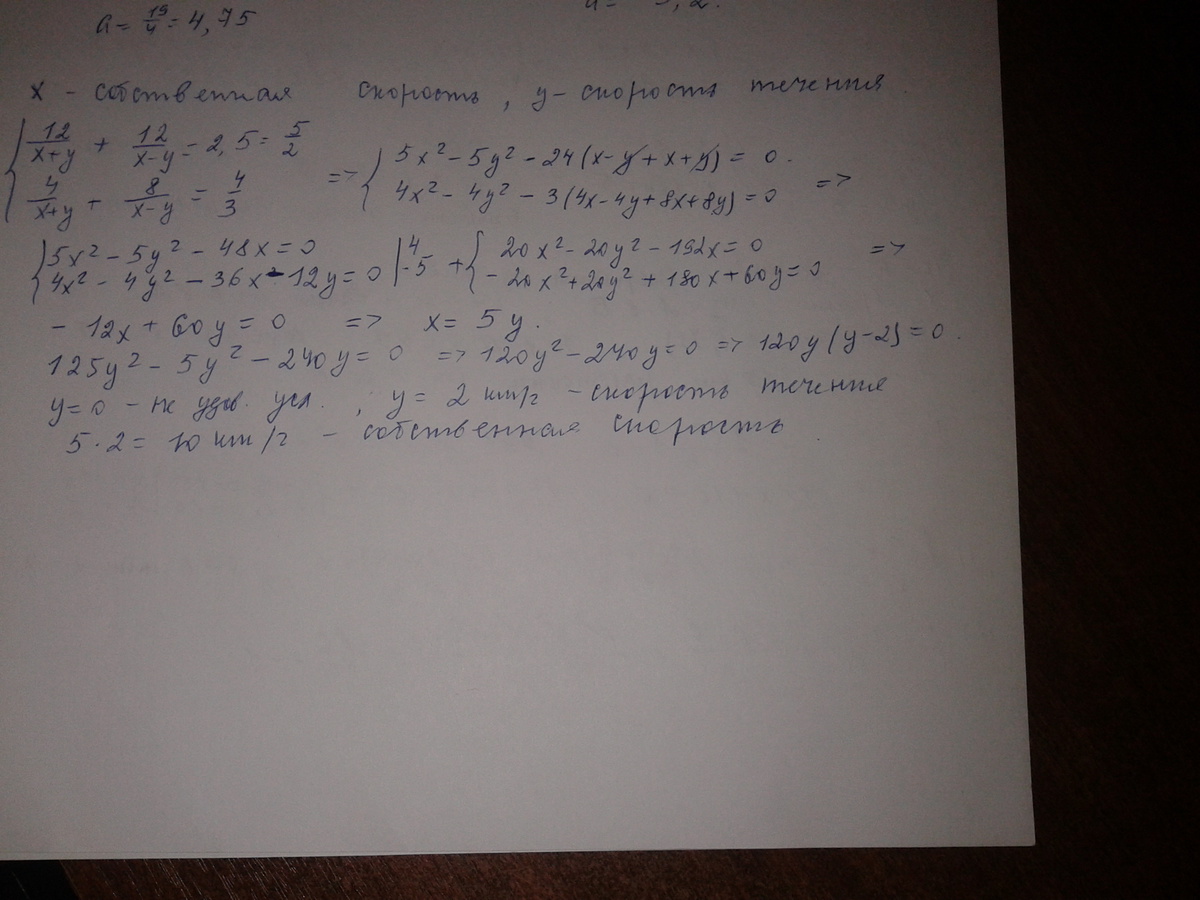 a = 19/4 = 4,75
x - собственная скорость, y - скорость течения.
{ 12/(x+y) + 12/(x-y) = 2,5 = 5/2
4/(x+y) + 8/(x-y) = 4/3
=> { 5x² - 5y² - 24(x-y+x+y) = 0.
4x² - 4y² - 3(4x-4y+8x+8y) = 0 =>
{ 5x² - 5y² - 48x = 0 | 4
4x² - 4y² - 36x - 12y = 0 | -5
+ { 20x² - 20y² - 192x = 0 =>
- 20x² + 20y² + 180x + 60y = 0
- 12x + 60y = 0 => x = 5y.
125y² - 5y² - 240y = 0 => 120y² - 240y = 0 => 120y(y-2) = 0.
y = 0 - не удов. усл., y = 2 км/г - скорость течения
5·2 = 10 км/г - собственная скорость.